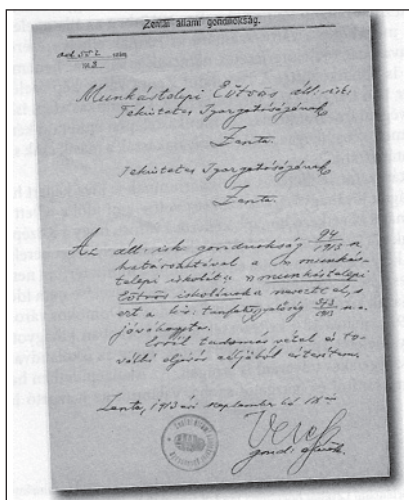 Zentai állami gondnokság.
ad 552 szám
1913
Munkástelepi Eötvös áll. isk.
Tekintetes Igazgatóságának
Zenta.
Tekintetes Igazgatóságának
Zenta.
Az áll. isk. gondnokság 94/1913 n.
határozatával a munkás-
telepi iskolát munkástelepi
Eötvös iskolának nevezte el, s
ezt a kir. tanfelügyelőség 1913 n. a.
jóváhagyta.
Erről tudomás vétel és to-
vábbi eljárás céljából értesítem.
Zenta, 1913 évi september hó
gond. elnök.